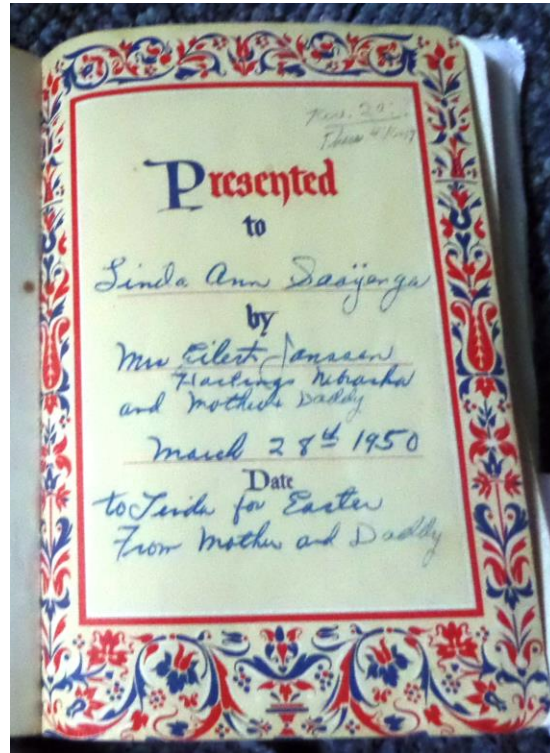 Rev. 20:
Presented
to
Linda Ann Saajenga
by
Mrs Eilert Janssen
Hastings Nebraska
and Mother Daddy
March 28th 1950
Date
to Linda for Easter
From Mother and Daddy